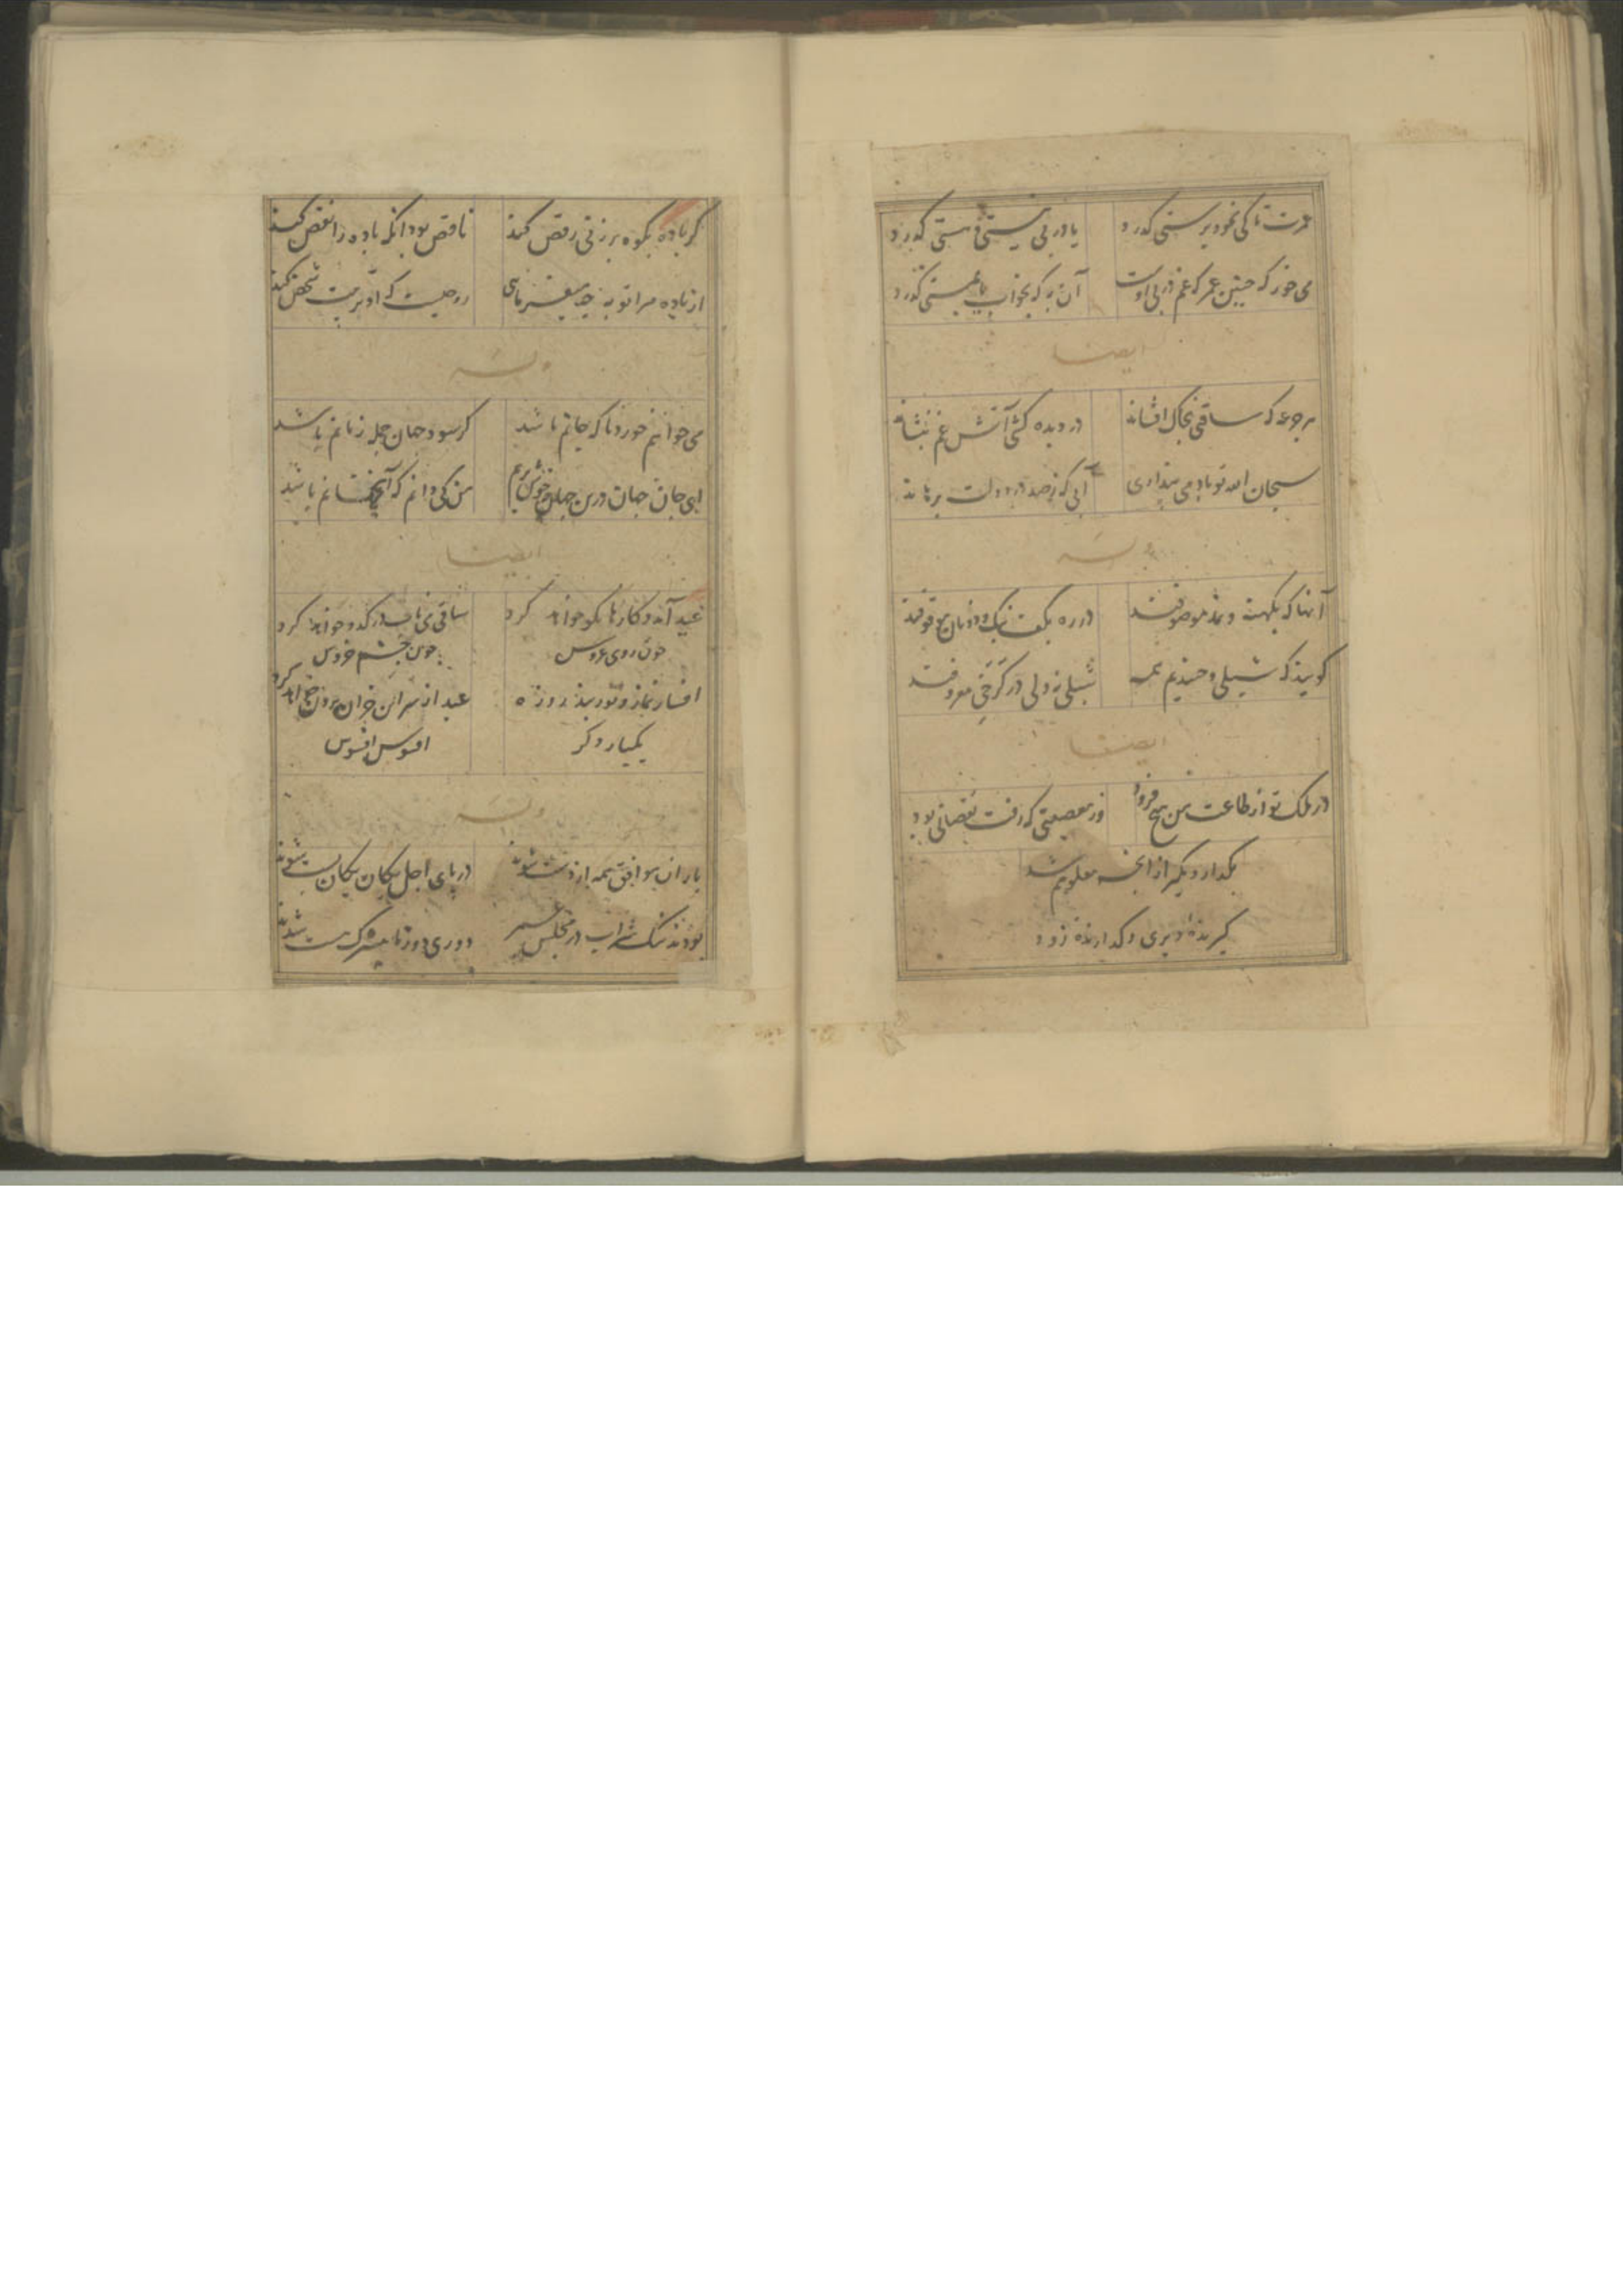 عمرت تا کی بخود پرستی گذرد یا در پی نیستی و هستی گذرد
می خور که چنین عمر که غم در پی اوست آن به که بخواب یا بمستی گذرد
ایضا
هر جرعه که ساقی بخاک افشاند در دیده کشی آتش غم بنشاند
سبحان الله تو باده می پنداری آبی که ز صد درد دلت برهاند
وله
آنها که بکهنه و نمد موصوفند در ره بکف نیک و دو نان موقوفند
گویند که شبلی و جنیدیم همه شبلی نه ولی در کرخی معروفند
ایضا
در ملک تو از طاعت من هیچ فزود وز معصیتی که رفت نقصانی بود
بگذار و مگیر از آنکه معلومم شد
گیرنده دیری و گذارنده زود
گر باده بکوه بر زنی رقص کند ناقص بود آنکه باده را نقص کند
از باده مرا توبه چه میفرمایی روحیست که او تربیت شخص کند
وله
می خوانم خورد تا که جانم باشد گر سود جهان جمله زیانم باشد
ای جان جهان درین جهان خوش بزیم من کی دانم که آنجهانم باشد
ایضا
عید آمد و کارها نکو خواهد کرد ساقی می ناب در کدو خواهد کرد
چون روی عروس چون چشم خروس
افسار نماز و پوزبند روزه عید از سر این خران برون خواهد کرد
یکبار دگر افسوس افسوس
وله
یاران موافق همه از دست شدند در پای اجل یکان یکان پست شدند
بودند تنک شراب در مجلس عمر دوری دو ز ما پیشترک مست شدند